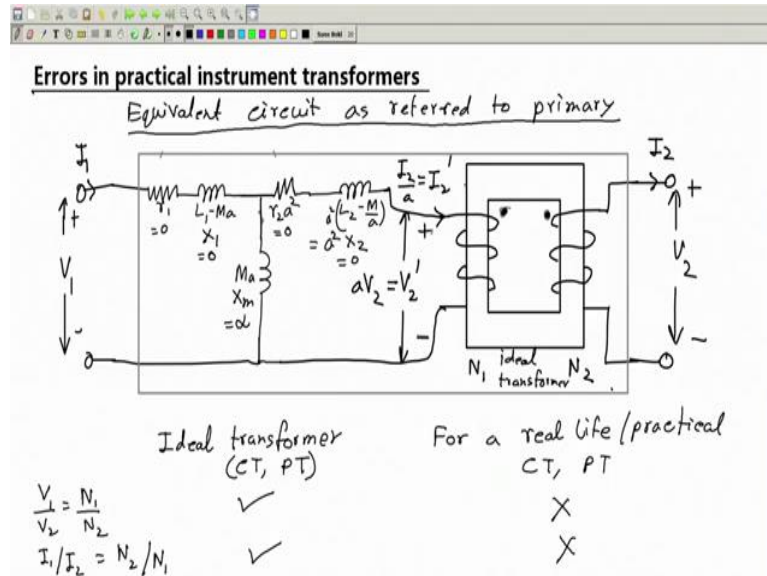 Errors in practical instrument transformers
Equivalent circuit as referred to primary
I₁
I₂/a = I₂'
I₂
r₁ = 0
L₁-Ma
X₁ = 0
r₂a² = 0
a²(L₂-M/a)
= a²X₂ = 0
+
+
+
V₁
Ma
Xm
=α
aV₂ = V₂'
V₂
-
-
-
N₁ ideal transformer N₂
Ideal transformer (CT, PT)
For a real life/practical CT, PT
V₁/V₂ = N₁/N₂ ✓ X
I₁/I₂ = N₂/N₁ ✓ X